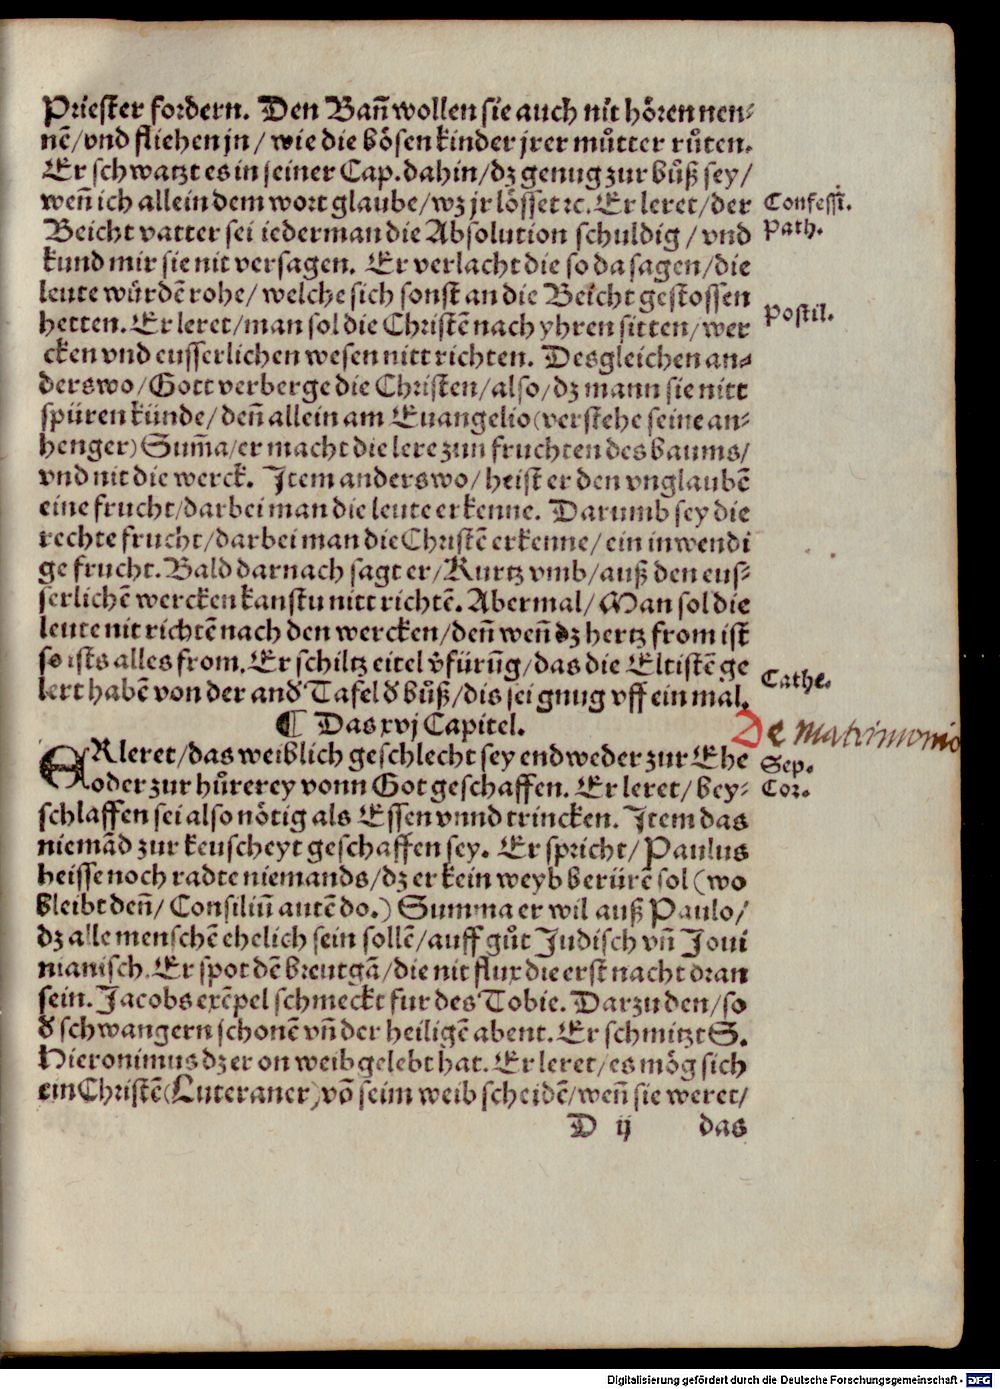 Priester fordern. Den Bañ wollen sie auch nit hören nen⸗
nē/vnd fliehen jn/ wie die bösen kinder jrer můtter růten.
Er schwatzt es in seiner Cap. dahin/dz genug zur bůß sey/
weñ ich allein dem wort glaube/wz jr lösset ꝛc. Er leret/der
Beicht vatter sei iederman die Absolution schuldig/vnd
kund mir sie nit versagen. Er verlacht die so da sagen/die
leute würdē rohe/ welche sich sonst an die Beicht gestossen
hetten. Er leret/man sol die Christē nach yhren sitten/wer
cken vnd eusserlichen wesen nitt richten. Desgleichen an⸗
derswo/Gott verberge die Christen/also/dz mann sie nitt
spüren künde/deñ allein am Euangelio(verstehe seine an⸗
henger) Sum̄a/er macht die lere zun fruchten des baums/
vnd nit die werck. Item anderswo/heist er den vnglaubē
eine frucht/darbei man die leute erkenne. Darumb sey die
rechte frucht/darbei man die Christē erkenne/ein inwendi
ge frucht. Bald darnach sagt er/Kurtz vmb/auß den eus⸗
serlichē wercken kanstu nitt richtē. Abermal/Man sol die
leute nit richtē nach den wercken/deñ weñ dz hertz from ist
so ists alles from. Er schiltz eitel v̊fürūg/das die Eltistē ge
lert habē von der and̕ Tafel d̕ bůß/dis sei gnug vff ein mal.
¶ Das xvj Capitel.
ERleret/das weiblich geschlecht sey endweder zur Ehe
oder zur hůrerey vonn Got geschaffen. Er leret/bey⸗
schlaffen sei also nötig als Essen vnnd trincken. Item das
niemād zur keuscheyt geschaffen sey. Er spricht/Paulus
heisse noch radte niemands/dz er kein weyb berürē sol (wo
bleibt deñ/ Consiliū autē do.) Summa er wil auß Paulo/
dz alle menschē ehelich sein sollē/auff gůt Judisch vñ Joui
nianisch. Er spot dē breutgā/die nit flux die erst nacht dran
sein. Jacobs exēpel schmeckt fur des Tobie. Darzu den/so
d̕ schwangern schonē vñ der heiligē abent. Er schmitzt S.
Hieronimus dz er on weib gelebt hat. Er leret/es mög sich
ein Christē(Luteraner) vō seim weib scheidē/weñ sie weret/
D ij das
Confess.
Path.
Postil.
Cathe.
De matrimonio
Sep.
Cor.
Digitalisierung gefördert durch die Deutsche Forschungsgemeinschaft - DFG